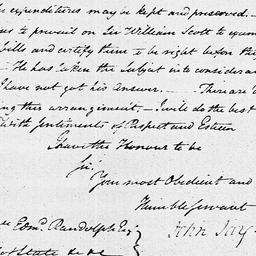 expenditures may be kept and preserved. —
us to prevail on Sir William Scott to exam
Bills and certify them to be right before the
— He has taken the Subject into considera
I have not got his answer. — There are
ing this arrangement. — I will do the best
with Sentiments of Respect and Esteem
I have the Honour to be
Sir,
Your most Obedient and
Humble Servant
John Jay
Edmd. Randolph Esqr.
of State &c &c